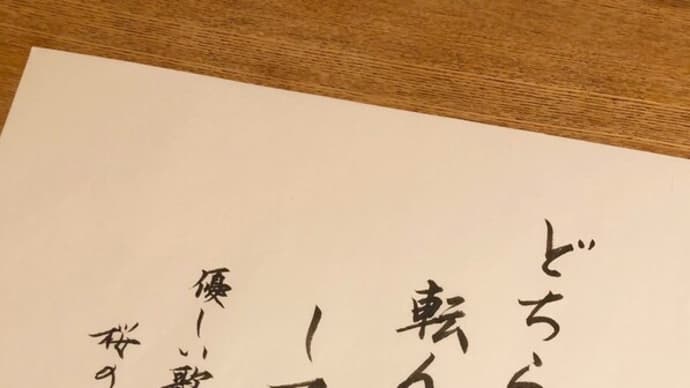 どちら
転
し
優しい歌
桜の